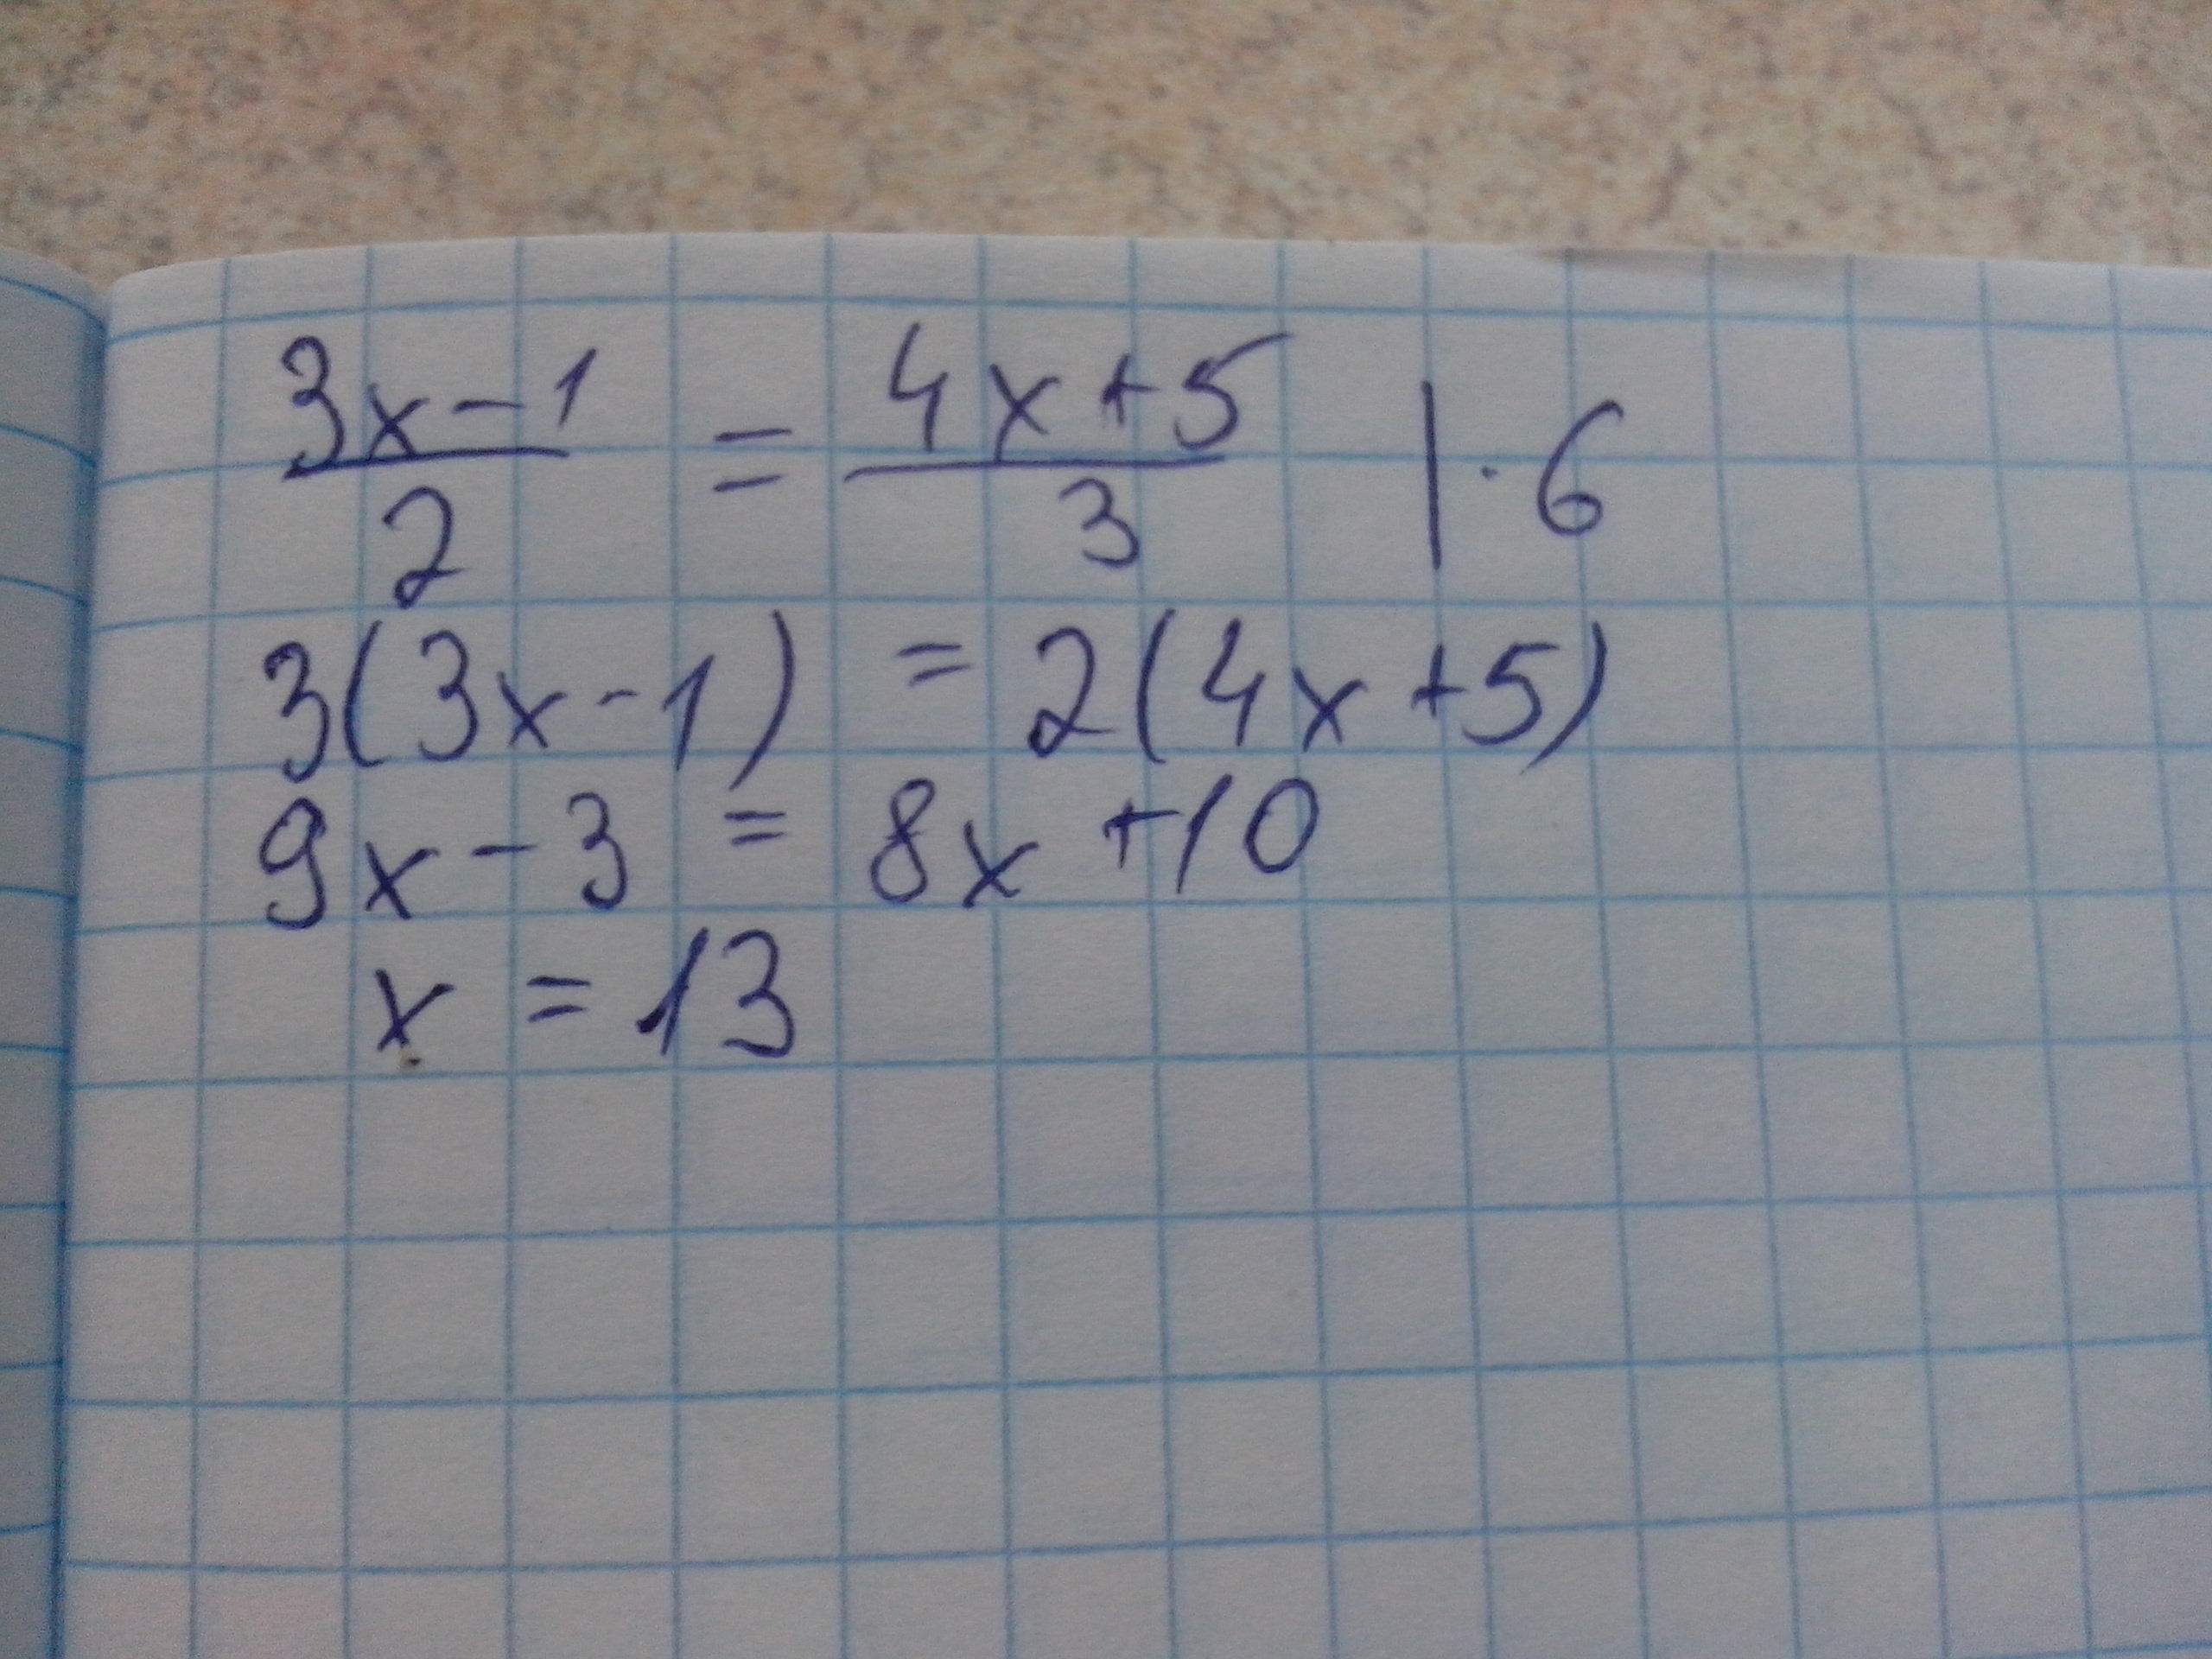 (3x-1)/2 = (4x+5)/3 |·6
3(3x-1) = 2(4x+5)
9x-3 = 8x+10
x = 13